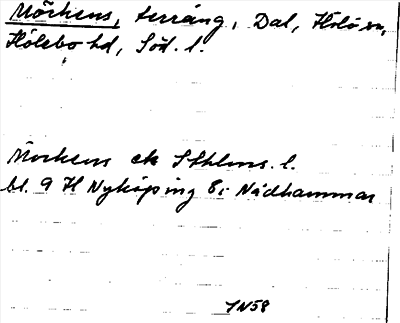 Mörkens, terräng, Dal, Hölö sn,
Hölebo hd, Söd. l.
Morkens ek Sthlms. l.
bl. 9 H Nyköping 8i Nådhammar
JN58